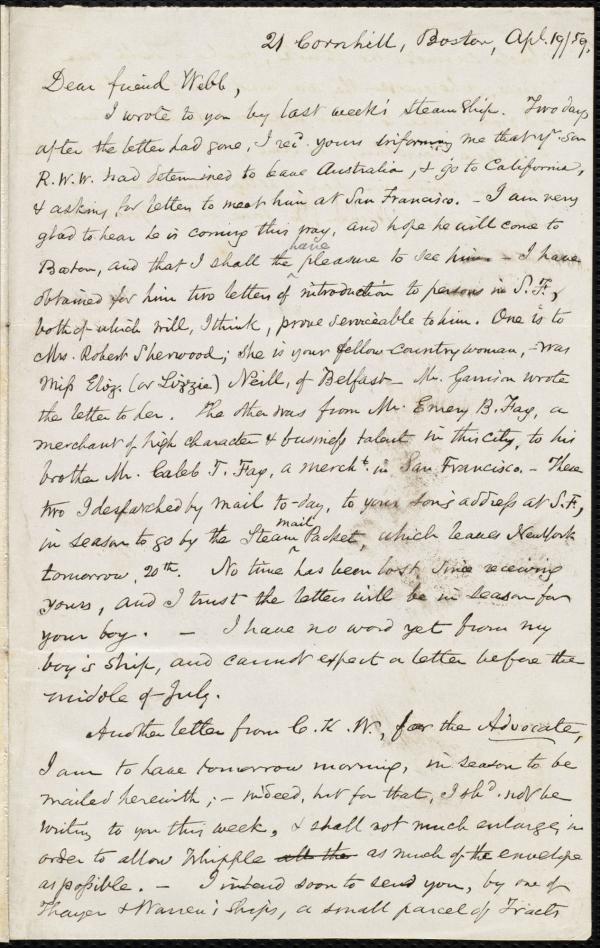 21 Cornhill, Boston, Apl. 19/59.
Dear friend Webb,
I wrote to you by last week's steamship. Two days
after the letter had gone, I recd. yours informing me that yr. son
R.W.W. had determined to leave Australia, & go to California,
& asking for letters to meet him at San Francisco. - I am very
glad to hear he is coming this way, and hope he will come to
Boston, and that I shall have the pleasure to see him. - I have
obtained for him two letters of introduction to persons in S.F.,
both of which will, I think, prove serviceable to him. One is to
Mrs. Robert Sherwood; she is your fellow-countrywoman, - was
Miss Eliz. (or Lizzie) Neill, of Belfast - Mr. Garrison wrote
the letter to her. The other was from Mr. Emery B. Fay, a
merchant of high character & business talent in this city, to his
brother Mr. Caleb T. Fay, a mercht. in San Francisco. - These
two I despatched by mail to-day, to your son's address at S.F.,
in season to go by the Steam mail Packet, which leaves New York
tomorrow, 20th. No time has been lost since receiving
yours, and I trust the letters will be in season for
your boy. - I have no word yet from my
boy's ship, and cannot expect a letter before the
middle of July.
Another letter from C. K. W., for the Advocate,
I am to have tomorrow morning, in season to be
mailed herewith; - indeed, but for that, I shd. not be
writing to you this week, & shall not much enlarge, in
order to allow Whipple all the as much of the envelope
as possible. - I intend soon to send you, by one of
Thayer & Warren's ships, a small parcel of Tracts